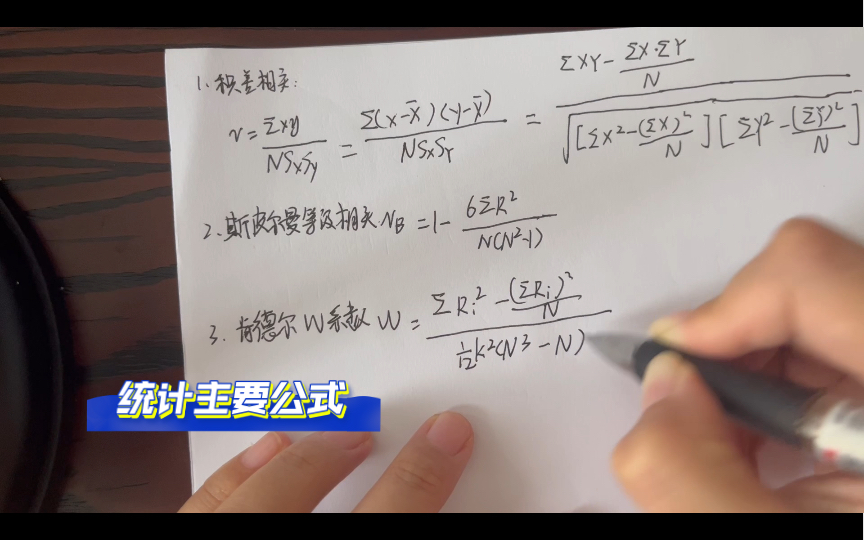 1. 积差相关:
r = Σxy / NSxSy = Σ(X-X̄)(Y-X̄) / NSxSY = ΣXY - ΣX·ΣY/N / √[ΣX² - (ΣX)²/N][ΣY² - (ΣY)²/N]
2. 斯皮尔曼等级相关 rB = 1 - 6ΣR² / N(N²-1)
3. 肯德尔W系数 W = ΣRi² - (ΣRi)²/N / 1/12 K²(N³-N)
统计主要公式